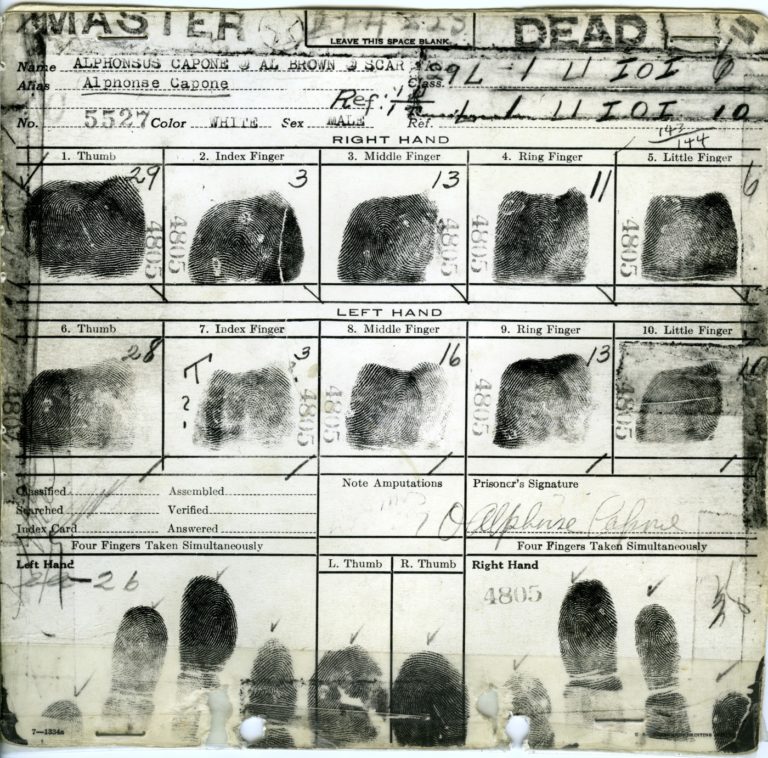 MASTER DEAD
LEAVE THIS SPACE BLANK
Name ALPHONSUS CAPONE @ AL BROWN @ SCAR Class. 9 L 1 U I O I 6
Alias Alphonse Capone
Ref: L 1 U I O I 10
No. 5527 Color WHITE Sex MALE Ref.
143
144
RIGHT HAND
1. Thumb 2. Index Finger 3. Middle Finger 4. Ring Finger 5. Little Finger
29 3 13 11 6
4805 4805 4805 4805 4805
LEFT HAND
6. Thumb 7. Index Finger 8. Middle Finger 9. Ring Finger 10. Little Finger
28 T ? 3 16 13 10
4805 4805 4805 4805 4805
Classified Assembled Note Amputations Prisoner's Signature
Searched Verified
Index Card Answered Alphonse Capone
Four Fingers Taken Simultaneously Four Fingers Taken Simultaneously
Left Hand L. Thumb R. Thumb Right Hand
26 4805
7—1334a